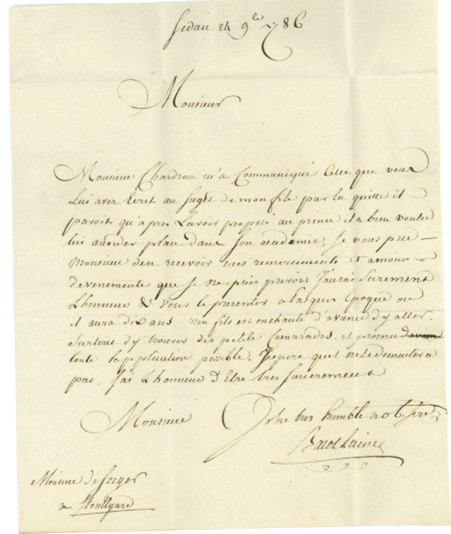 Sedan 24 9bre 1786
Monsieur
Monsieur Chardron m'a Communiqué Celle que vous
Lui avez Ecrit au Sujet de mon fils par la quelle il
paroit qu'apres Lavoir proposé au prince il a bien voulu
lui accorder place dans Son academie, Je vous prie
Monsieur d'en recevoir mes remerciments et amour
d'evenements que Je ne puis prevoir J'aurai Surement
Lhonneur de Vous le presenter a laquel Epoque ou
il aura dix ans, mon fils est enchanté d'avance d'y aller,
Surtout d'y trouver des petits Camarades, et promet
toute l'application possible, J'espere quil ne se dementira
pas, J'ai Lhonneur d'Etre tres Sincerement
Monsieur
Votre tres humble et obt Serv
Monsieur de Serger
a Stoullgard